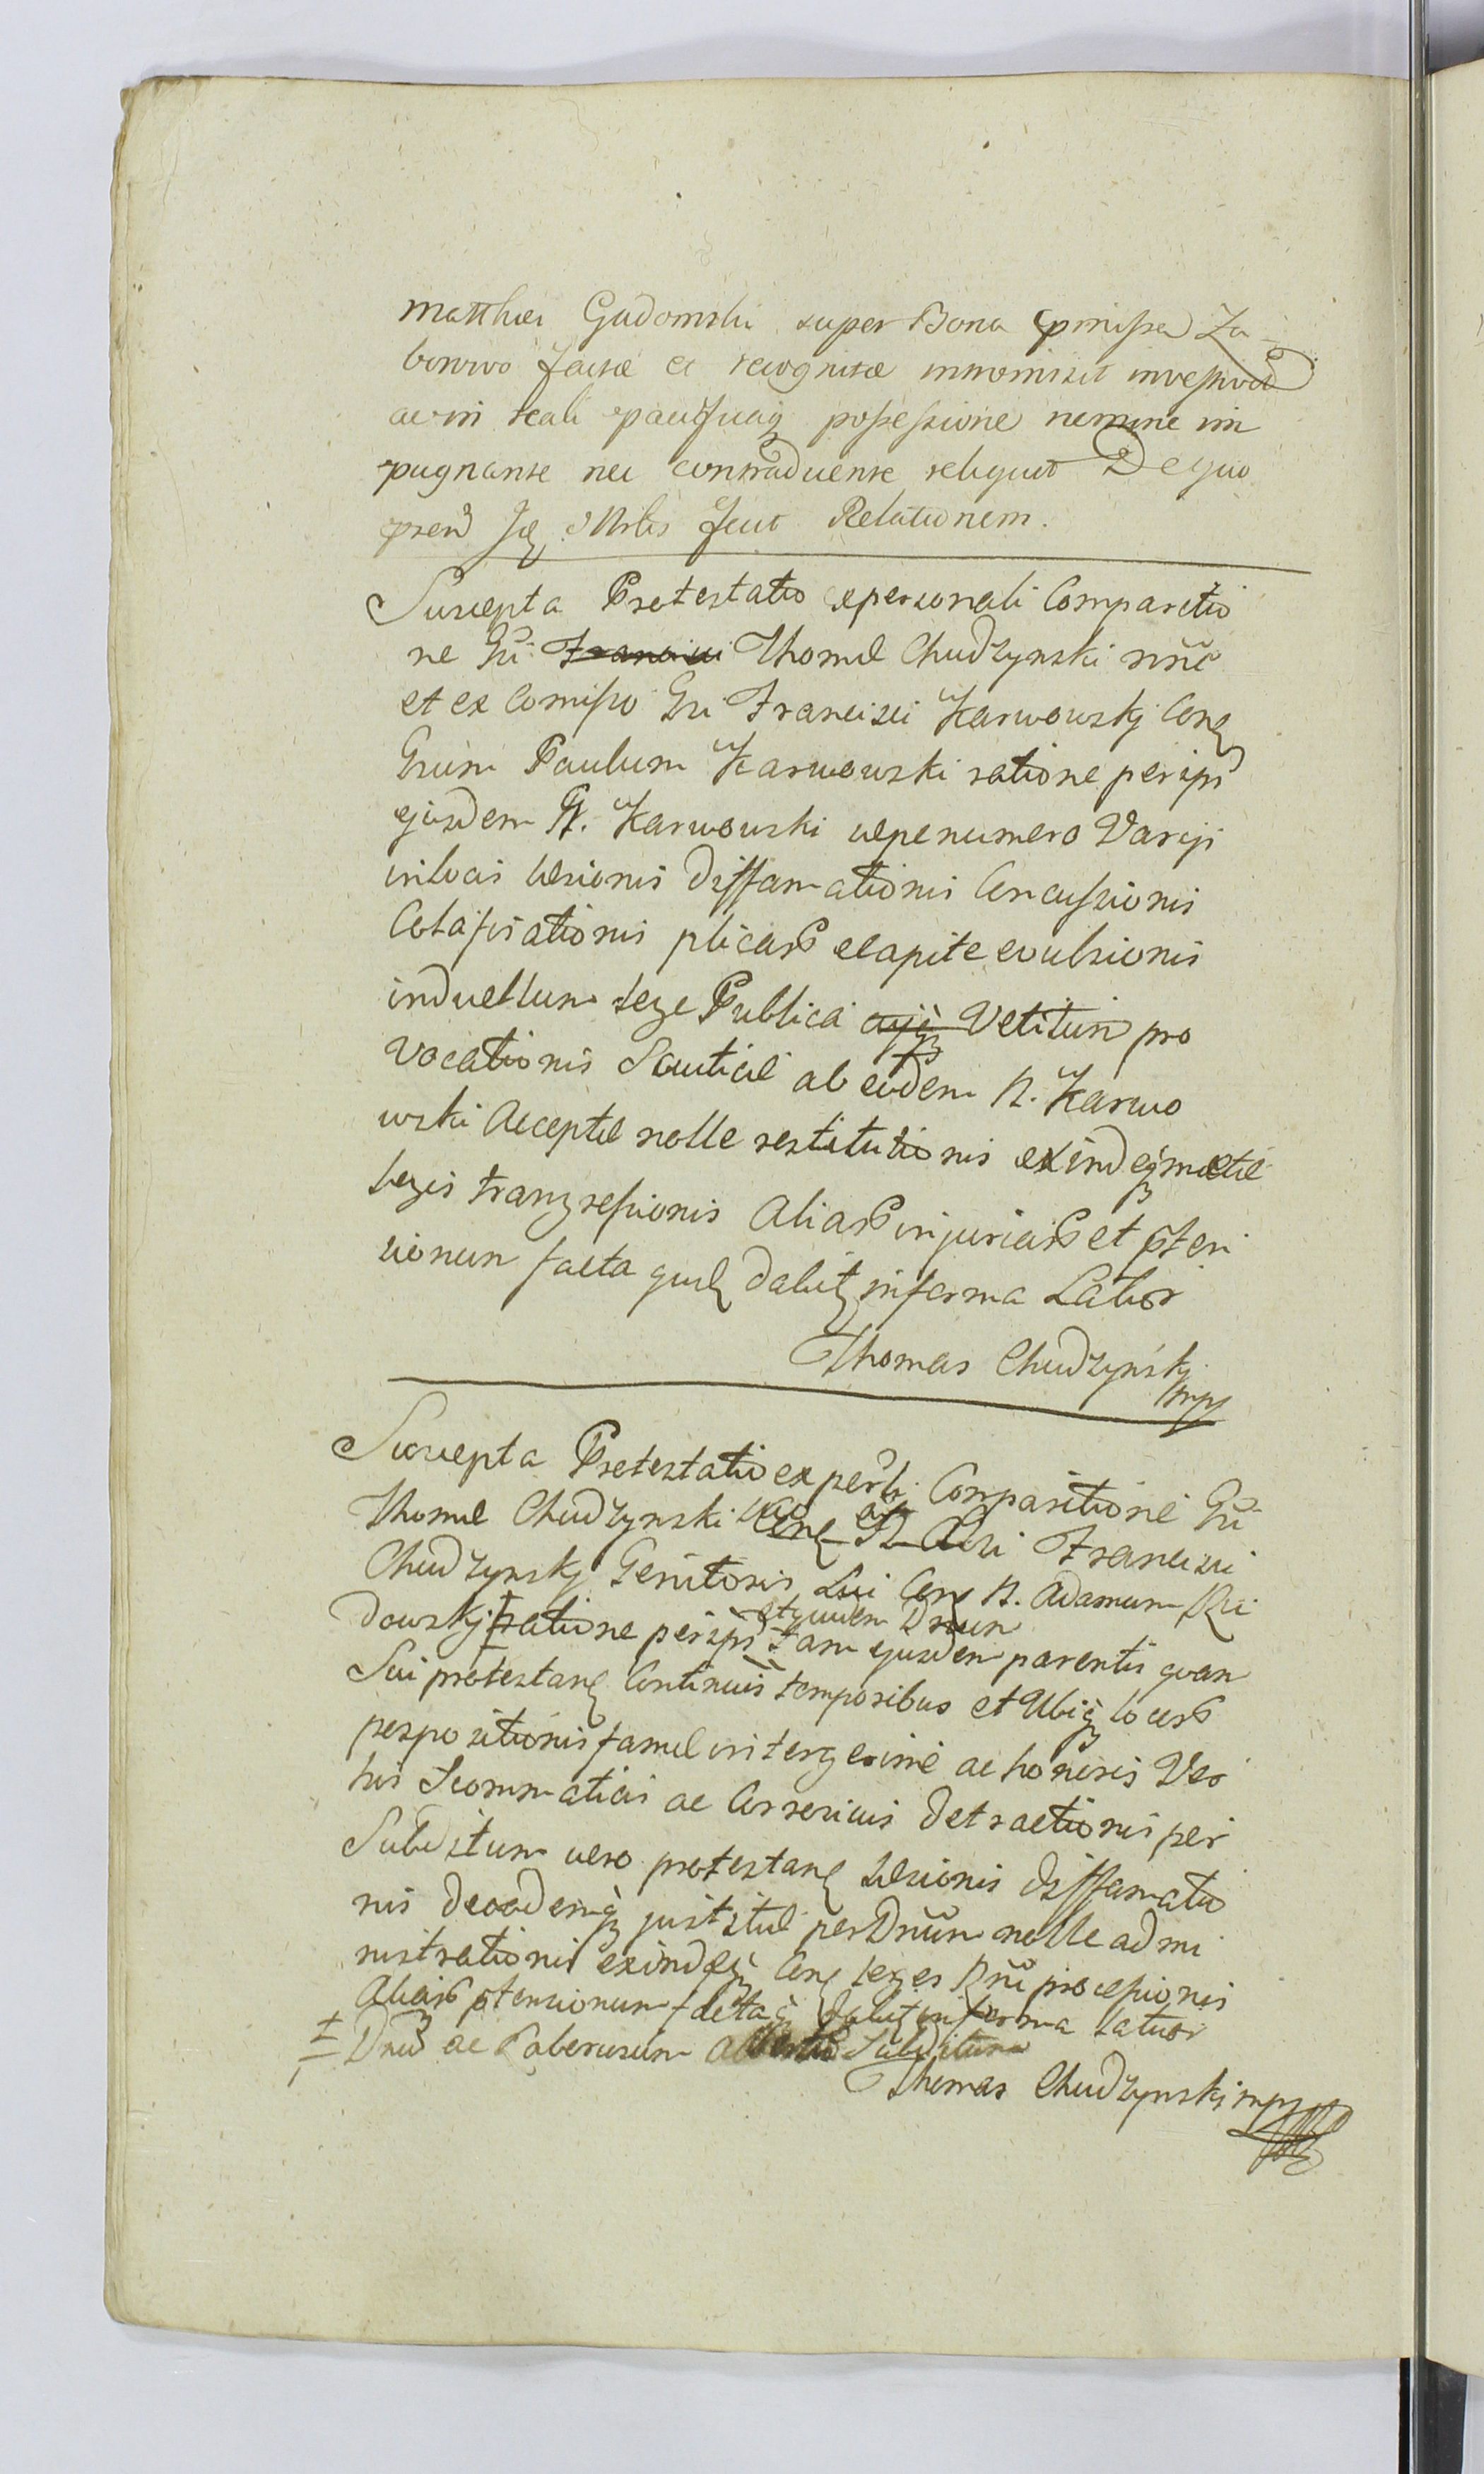 Matthiæ Gadomski super Bona pmissa Za-
borowo factæ et recognitæ intromisit investivit
ac in reali pacificaq possessione nemine im
pugnante nec contradicente reliquit De quo
præd Jg Mrlis fecit Relationem.
Suscepta Protestatio expersonali Comparitio
ne Gsi Francisci Thomæ Chudzynski nne
et ex Comisso Gsi Francisci Karwowskj Con
Gsum Paulum Karwowski ratione per ipsi
ejusdem N. Karwowski sæpenumero Varijs
inlocis læsionis diffamationis Concussionis
plicarum ecapite evulsionis
induellum lege Publica Vetitum pro
vocationis ab eodem N. Karwo
wski Acceptæ nolle restitutionis exindeq
legis transgressionis Aliarum injuriarum et pten
sionum facta quæ dabit informa Latior
Thomas Chudzynskj mpp
Suscepta Protestatio ex perli Comparitione Gsi
Thomæ Chudzynski Francisci
Chudzynskj Genitoris Sui Con N. Adamum Ru
dowskj ratione per ipsi etquidem Dnum tam ejusdem parentis quam
Sui protestan Continuis temporibus et Ubiq locorum
pexpositionis famæ intergerime ac honoris Ver
bis Scommaticis ac detractionis per
Subditum vero protestan Læsionis diffamatio
nis deeodemq justitiæ per Dnum nolle admi
nistrationis exindeq Con leges Rni processionis
Aliarum ptensionum facta q dabit informa latior
Dnus ac Laboriosum Subditum
Thomas Chudzynski mpp